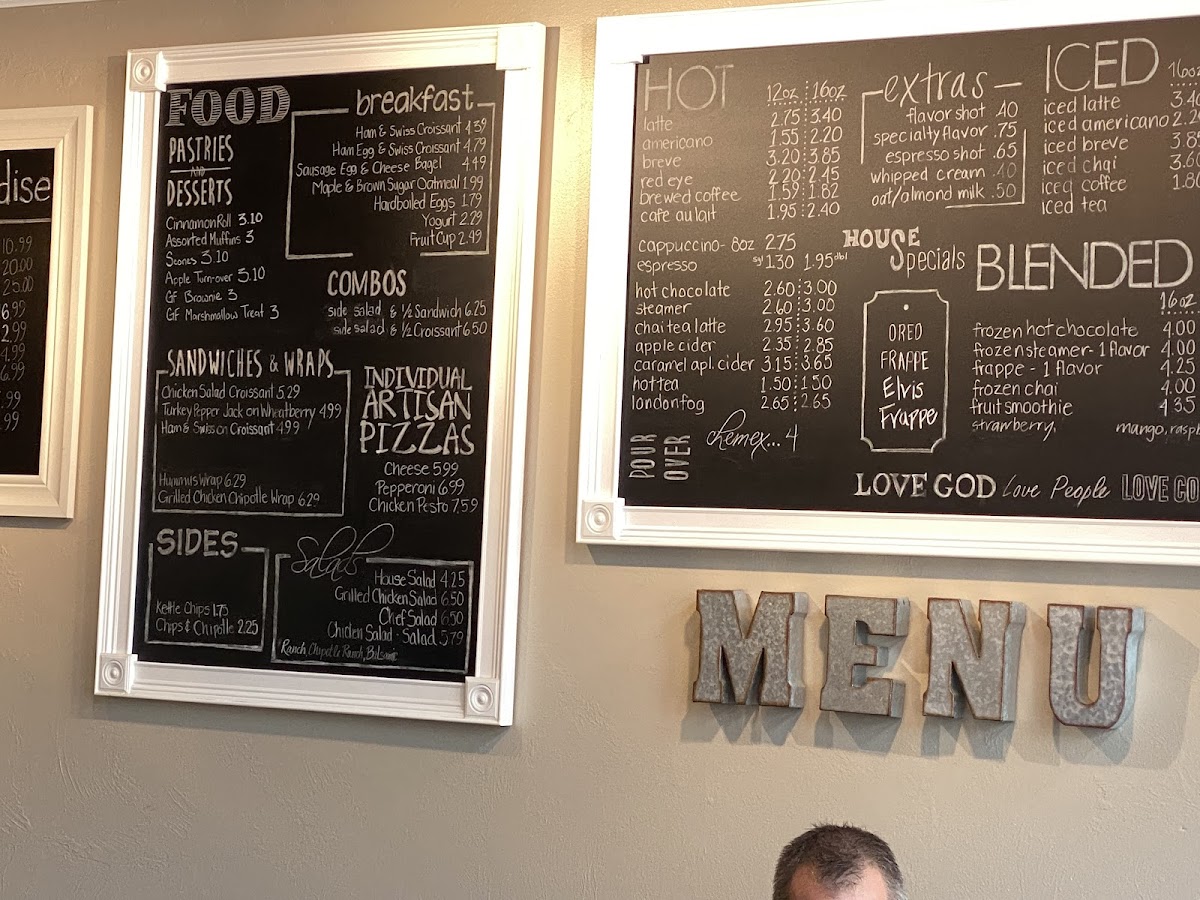 dise
10.99
20.00
25.00
6.95
2.99
4.99
6.99
.99
.99
FOOD
PASTRIES
AND
DESSERTS
Cinnamon Roll 3.10
Assorted Muffins 3
Scones 3.10
Apple Turn-over 3.10
GF Brownie 3
GF Marshmallow Treat 3
breakfast
Ham & Swiss Croissant 4.39
Ham Egg & Swiss Croissant 4.79
Sausage Egg & Cheese Bagel 4.49
Maple & Brown Sugar Oatmeal 1.99
Hardboiled Eggs 1.79
Yogurt 2.29
Fruit Cup 2.49
COMBOS
side salad & ½ Sandwich 6.25
side salad & ½ Croissant 6.50
SANDWICHES & WRAPS
Chicken Salad Croissant 5.29
Turkey Pepper Jack on Wheatberry 4.99
Ham & Swiss on Croissant 4.99
Hummus Wrap 6.29
Grilled Chicken Chipotle Wrap 6.29
INDIVIDUAL
ARTISAN
PIZZAS
Cheese 5.99
Pepperoni 6.99
Chicken Pesto 7.59
SIDES
Kettle Chips 1.75
Chips & Chipotle 2.25
Salads
House Salad 4.25
Grilled Chicken Salad 6.50
Chef Salad 6.50
Chicken Salad - Salad 5.79
Ranch, Chipotle Ranch, Balsamic
HOT 12oz 16oz
latte 2.75 3.40
americano 1.55 2.20
breve 3.20 3.85
red eye 2.20 2.45
brewed coffee 1.59 1.82
cafe au lait 1.95 2.40
cappuccino - 8oz 2.75
espresso sgl 1.30 1.95 dbl
hot chocolate 2.60 3.00
steamer 2.60 3.00
chai tea latte 2.95 3.60
apple cider 2.35 2.85
caramel apl. cider 3.15 3.65
hot tea 1.50 1.50
london fog 2.65 2.65
POUR
OVER
chemex... 4
extras
flavor shot .40
specialty flavor .75
espresso shot .65
whipped cream .40
oat/almond milk .50
HOUSE
Specials
OREO
FRAPPE
Elvis
Frappe
ICED 16oz
iced latte 3.4
iced americano 2.2
iced breve 3.8
iced chai 3.6
iced coffee 1.8
iced tea
BLENDED
16oz
frozen hot chocolate 4.00
frozen steamer - 1 flavor 4.00
frappe - 1 flavor 4.25
frozen chai 4.00
fruit smoothie 4.35
strawberry, mango, raspb
LOVE GOD Love People LOVE CO
MENU